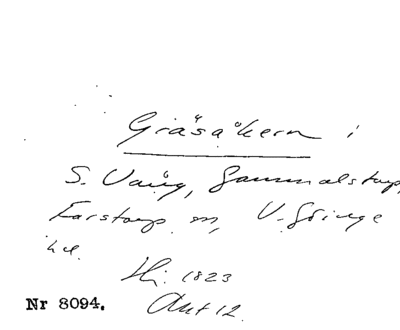 Gräsåkern i
S. Vång, Gammalstorp,
Farstorp sn, V. Göinge
hd.
Hi. 1823
Akt 12.
Nr 8094.